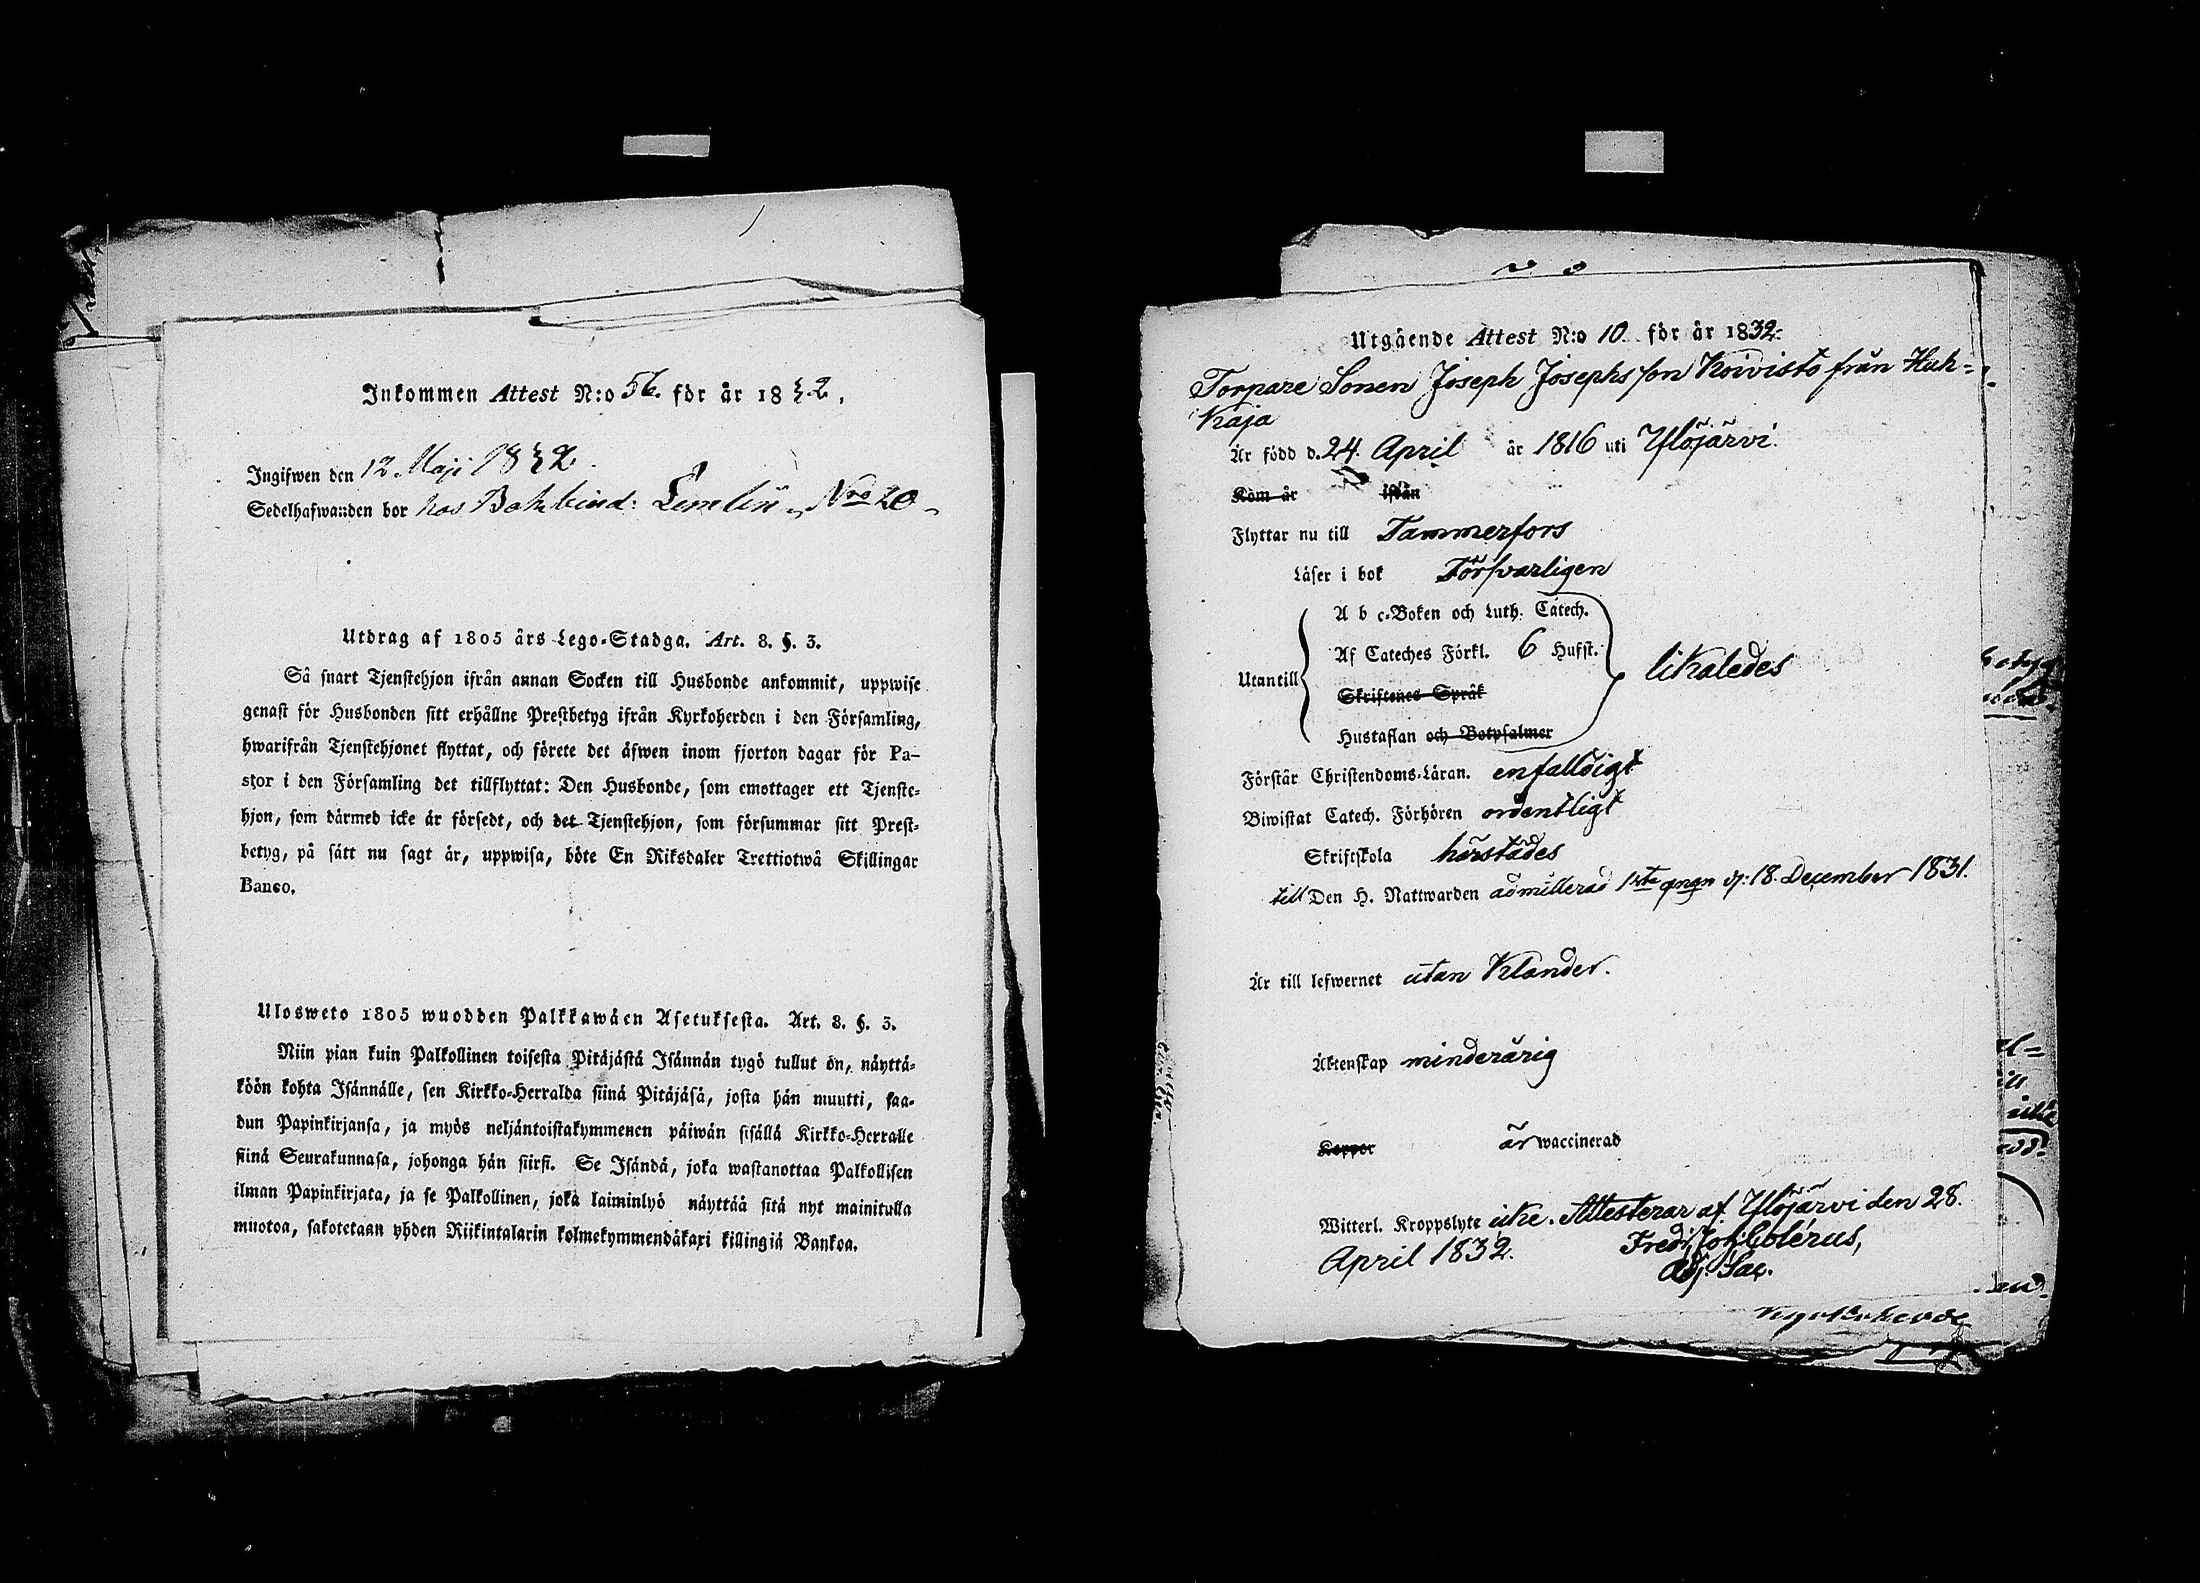 Inkommen Attest N:o 56. för år 1832.
Ingifwen den 12 Maji 1832.
Sedelhafwanden bor hos Bokbind: Lemlin Nro 20
Utdrag af 1805 års Lego-Stadga. Art. 8. §. 3.
Så snart Tjenstehjon ifrån annan Socken till Husbonde ankommit, uppwise
genast för Husbonden sitt erhållne Prestbetyg ifrån Kyrkoherden i den Församling,
hwarifrån Tjenstehjonet flyttat, och förete det äfwen inom fjorton dagar för Pa-
stor i den Församling det tillflyttat: Den Husbonde, som emottager ett Tjenste-
hjon, som därmed icke är försedt, och det Tjenstehjon, som försummar sitt Prest-
betyg, på sätt nu sagt är, uppwisa, böte En Riksdaler Trettiotwå Skillingar
Banco.
Ulosweto 1805 wuodden Palkkawäen Asetuksesta. Art. 8. §. 3.
Niin pian kuin Palkollinen toisesta Pitäjästä Isännän tygö tullut on, näyttä-
köön kohta Isännälle, sen Kirkko-Herralda siinä Pitäjäsä, josta hän muutti, saa-
dun Papinkirjansa, ja myös neljäntoistakymmenen päiwän sisällä Kirkko-Herralle
siinä Seurakunnasa, johonga hän siirsi. Se Isändä, joka wastanottaa Palkollisen
ilman Papinkirjata, ja se Palkollinen, joka laiminlyö näyttää sitä nyt mainitulla
muotoa, sakotetaan yhden Riikintalarin kolmekymmendäkaxi killingiä Bankoa.
Utgående Attest N:o 10. för år 1832.
Torpare Sonen Joseph Josephsson Koivisto från Huh-
kaja
Är född d. 24. April år 1816 uti Ylöjärvi.
Kom år ifrån
Flyttar nu till Tammerfors
Läser i bok Försvarligen
A b c-Boken och Luth. Catech.
Af Cateches Förkl. 6 Hufst.
Utantill likaledes
Skriftenes Språk
Hustaflan och Botpsalmer
Förstår Christendoms-Läran. enfalldigt
Biwistat Catech. Förhören ordentligt
Skriftskola härstädes
till Den H. Nattwarden admitterad 1sta gngn d: 18. December 1831.
Är till lefwernet utan Klander.
Äktenskap minderårig
Koppor är waccinerad
Witterl. Kroppslyte icke. Attesterar af Ylöjärvi den 28.
April 1832. Fredr. Joh: Colérus,
Adj. Sac.